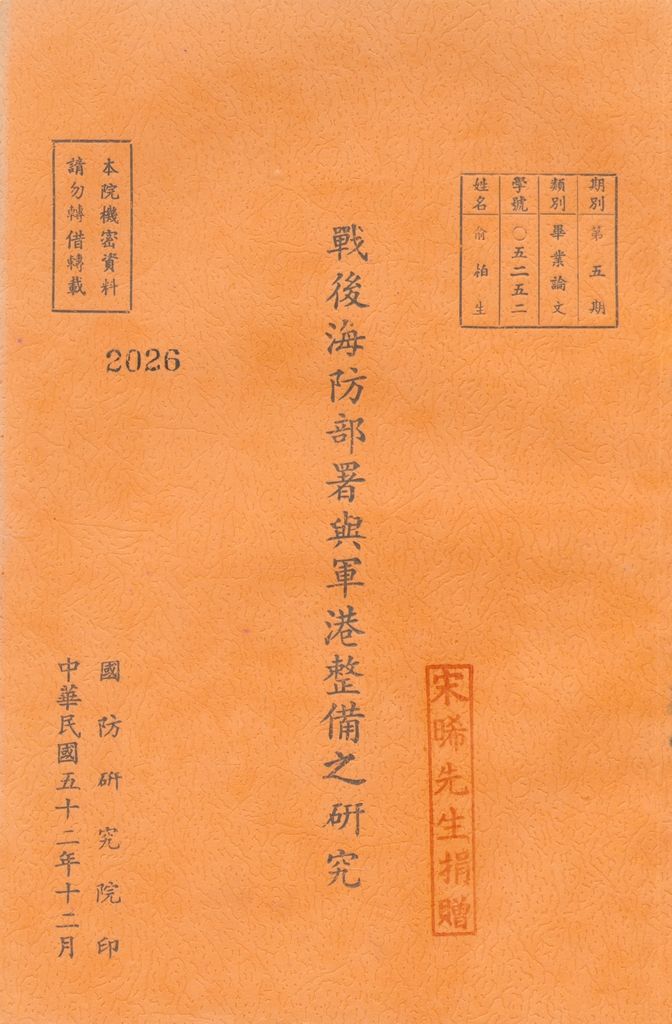 期別 第五期
類別 畢業論文
學號 〇五二五二
姓名 俞柏生
戰後海防部署與軍港整備之研究
本院機密資料
請勿轉借轉載
2026
宋晞先生捐贈
國防研究院印
中華民國五十二年十二月